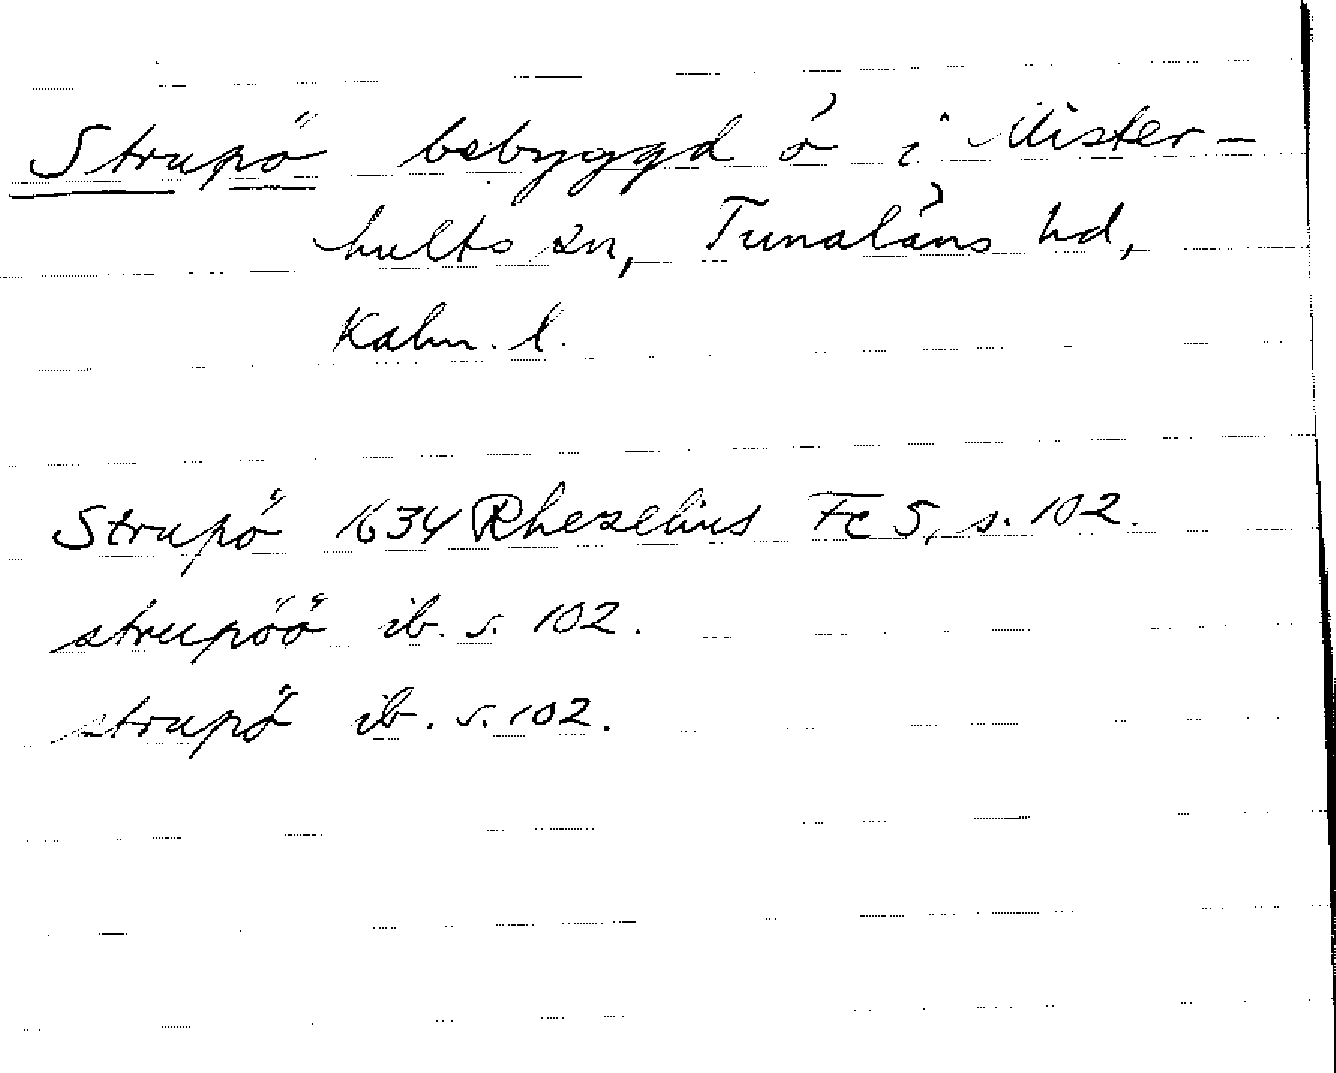 Strupö bebyggd ö i Mister-
hults sn, Tunaläns hd,
Kalm. l.
Strupö 1634 Rhezelius Fc 5, s. 102.
strupöö ib. s. 102.
strupö ib. s. 102.